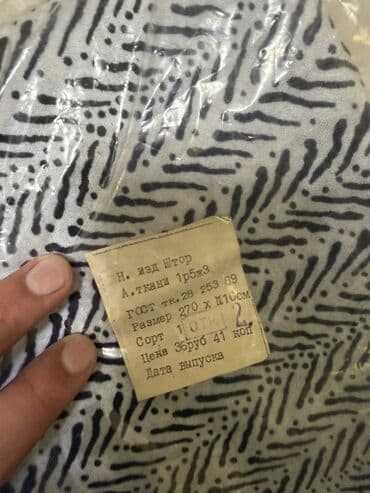 Н. изд Штор
А. ткани 1р5ж3
ГОСТ тк. 28 253 89
Размер 270 х 110см
Сорт 1 2
Цена 36руб 41 коп
Дата выпуска